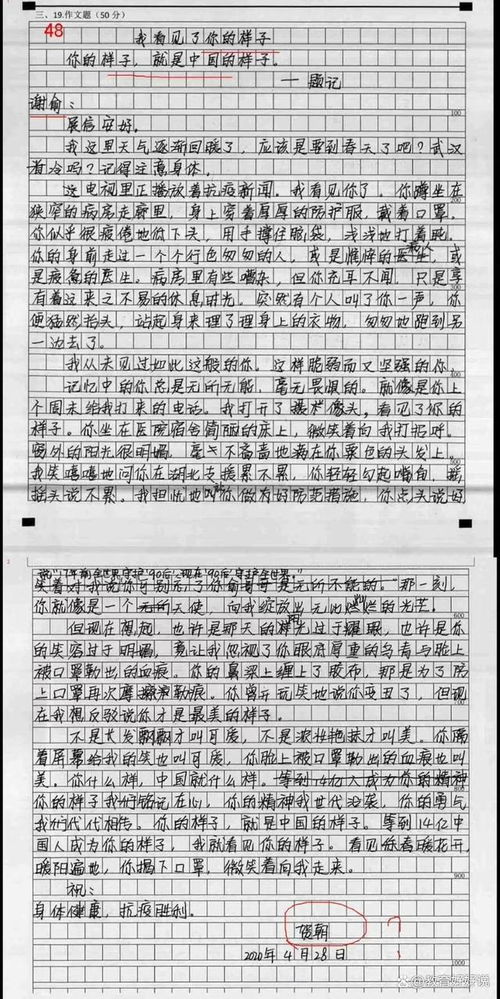 三、19.作文题（50分）
48
我看见了你的样子
你的样子，就是中国的样子。
——题记
谢俞：
展信安好。
100
我这里天气逐渐回暖了，应该是要到春天了吧？武汉
省冷吗？记得注意身体。
这电视里正播放着抗疫新闻。我看见你了。你蹲坐在
200
狭窄的病房走廊里，身上穿着厚厚的防护服，戴着口罩。
你似乎很疲倦地低下头，用手撑住脑袋，浅浅地打着盹。
你的身前走过一个个行色匆匆的人，或是憔悴的病人，或
是疲惫的医生。病房里有些嘈杂，但你充耳不闻，只是享
300
有着这来之不易的休息时光。突然有个人叫了你一声，你
便猛然抬头，站起身来理了理身上的衣物，匆匆地跑到另
一边去了。
我从未见过如此这般的你。这样脆弱而又坚强的你。
400
记忆中的你总是无所不能，毫无畏惧的。就像是你上
个周末给我打来的电话。我打开了摄像头，看见了你的
样子。你坐在医院宿舍简陋的床上，微笑着向我打招呼。
窗外的阳光很明媚，毫不吝啬地洒在你栗色的头发上。
500
我笑嘻嘻地问你在湖北支援累不累，你轻轻勾起嘴角，摇
摇头说不累。我担忧地叫你做好防范措施，你点头说好
说："17年前全世界守护'90后'，现在'90后'守护全世界。"
笑着对我说你可别忘了你俞哥哥是无所不能的。那一刻，
你就像是一个天使，向我绽放出无比灿烂的光芒。
600
但现在想起，也许是那天的阳光过于耀眼，也许是你
的笑容过于明媚，竟让我忽视了你眼底厚重的乌青与脸上
被口罩勒出的血痕。你的鼻梁上缠上了胶布，那是为了防
止口罩再次摩擦勒痕。你曾开玩笑地说你变丑了，但现
700
在我想反驳说你才是最美的样子。
不是长发飘飘才叫可质，不是浓妆艳抹才叫美。你隔
着屏幕给我的笑也叫可质，你脸上被口罩勒出的血痕也叫
美。你什么样，中国就什么样。等到14亿人成为你的精神
800
你的样子我们铭记在心，你的精神我世代沿袭，你的勇气
我们代代相传。你的样子，就是中国的样子。等到14亿中
国人成为你的样子，我就看见你的样子。看见你春暖花开，
暖阳遍地，你揭下口罩，微笑着向我走来。
900
祝：
身体健康，抗疫胜利。
贺朝
2020年4月28日
1000